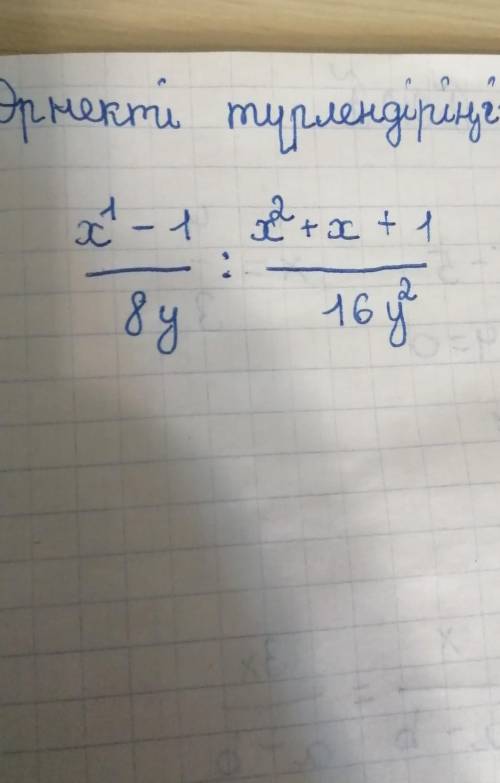 Өрнекті түрлендіріңі
x¹ - 1 / 8y : x² + x + 1 / 16y²